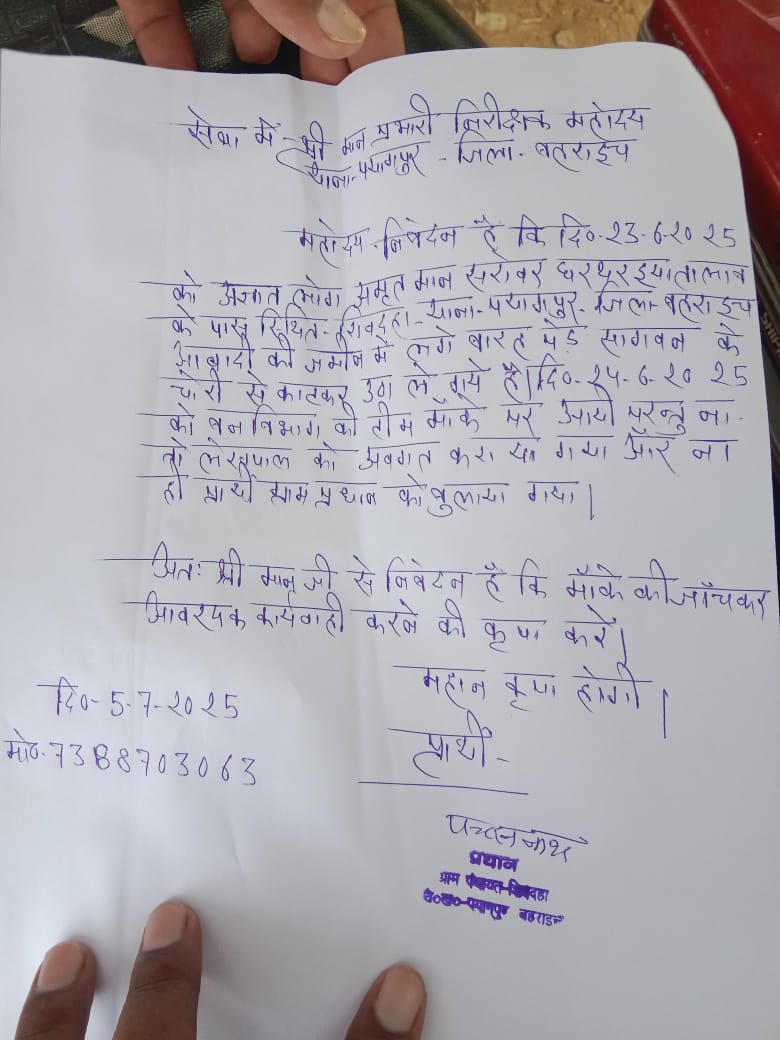 सेवा में - श्री मान प्रभारी निरीक्षक महोदय
थाना-पयागपुर - जिला- बहराइच
महोदय निवेदन है कि दि०-23-6-2025
को अज्ञात लोग अमृत मान सरोवर तालाब
के पास स्थित- थाना-पयागपुर- जिला-बहराइच
आबादी की जमीन में लगे बारह पेड़ सागवन के
चोरी से काटकर उठा ले गये है। दि०-24-6-2025
को वन विभाग की टीम मौके पर आयी परन्तु ना-
तो लेखपाल को अवगत कराया गया और ना
ही प्रार्थी ग्राम प्रधान को बुलाया गया।
अतः श्री मान् जी से निवेदन है कि मौके की जाँच कर
आवश्यक कार्यवाही करने की कृपा करें।
महान कृपा होगी।
दि०-5-7-2025
प्रार्थी-
मो०-7388703063
प्रधान
ग्राम पंचायत-
वि०ख०-पयागपुर बहराइच